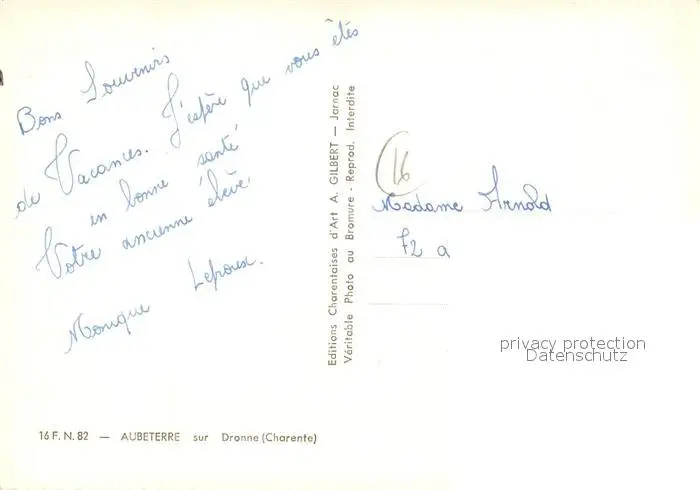 Bons Souvenirs
de Vacances. J'espère que vous êtes
en bonne santé
Votre ancienne élève.
Monique
Editions Charentaises d'Art A. GILBERT — Jarnac
Véritable Photo au Bromure - Reprod. Interdite
16
Madame Arnold
F2 a
privacy protection
Datenschutz
16 F. N. 82 — AUBETERRE sur Dronne (Charente)